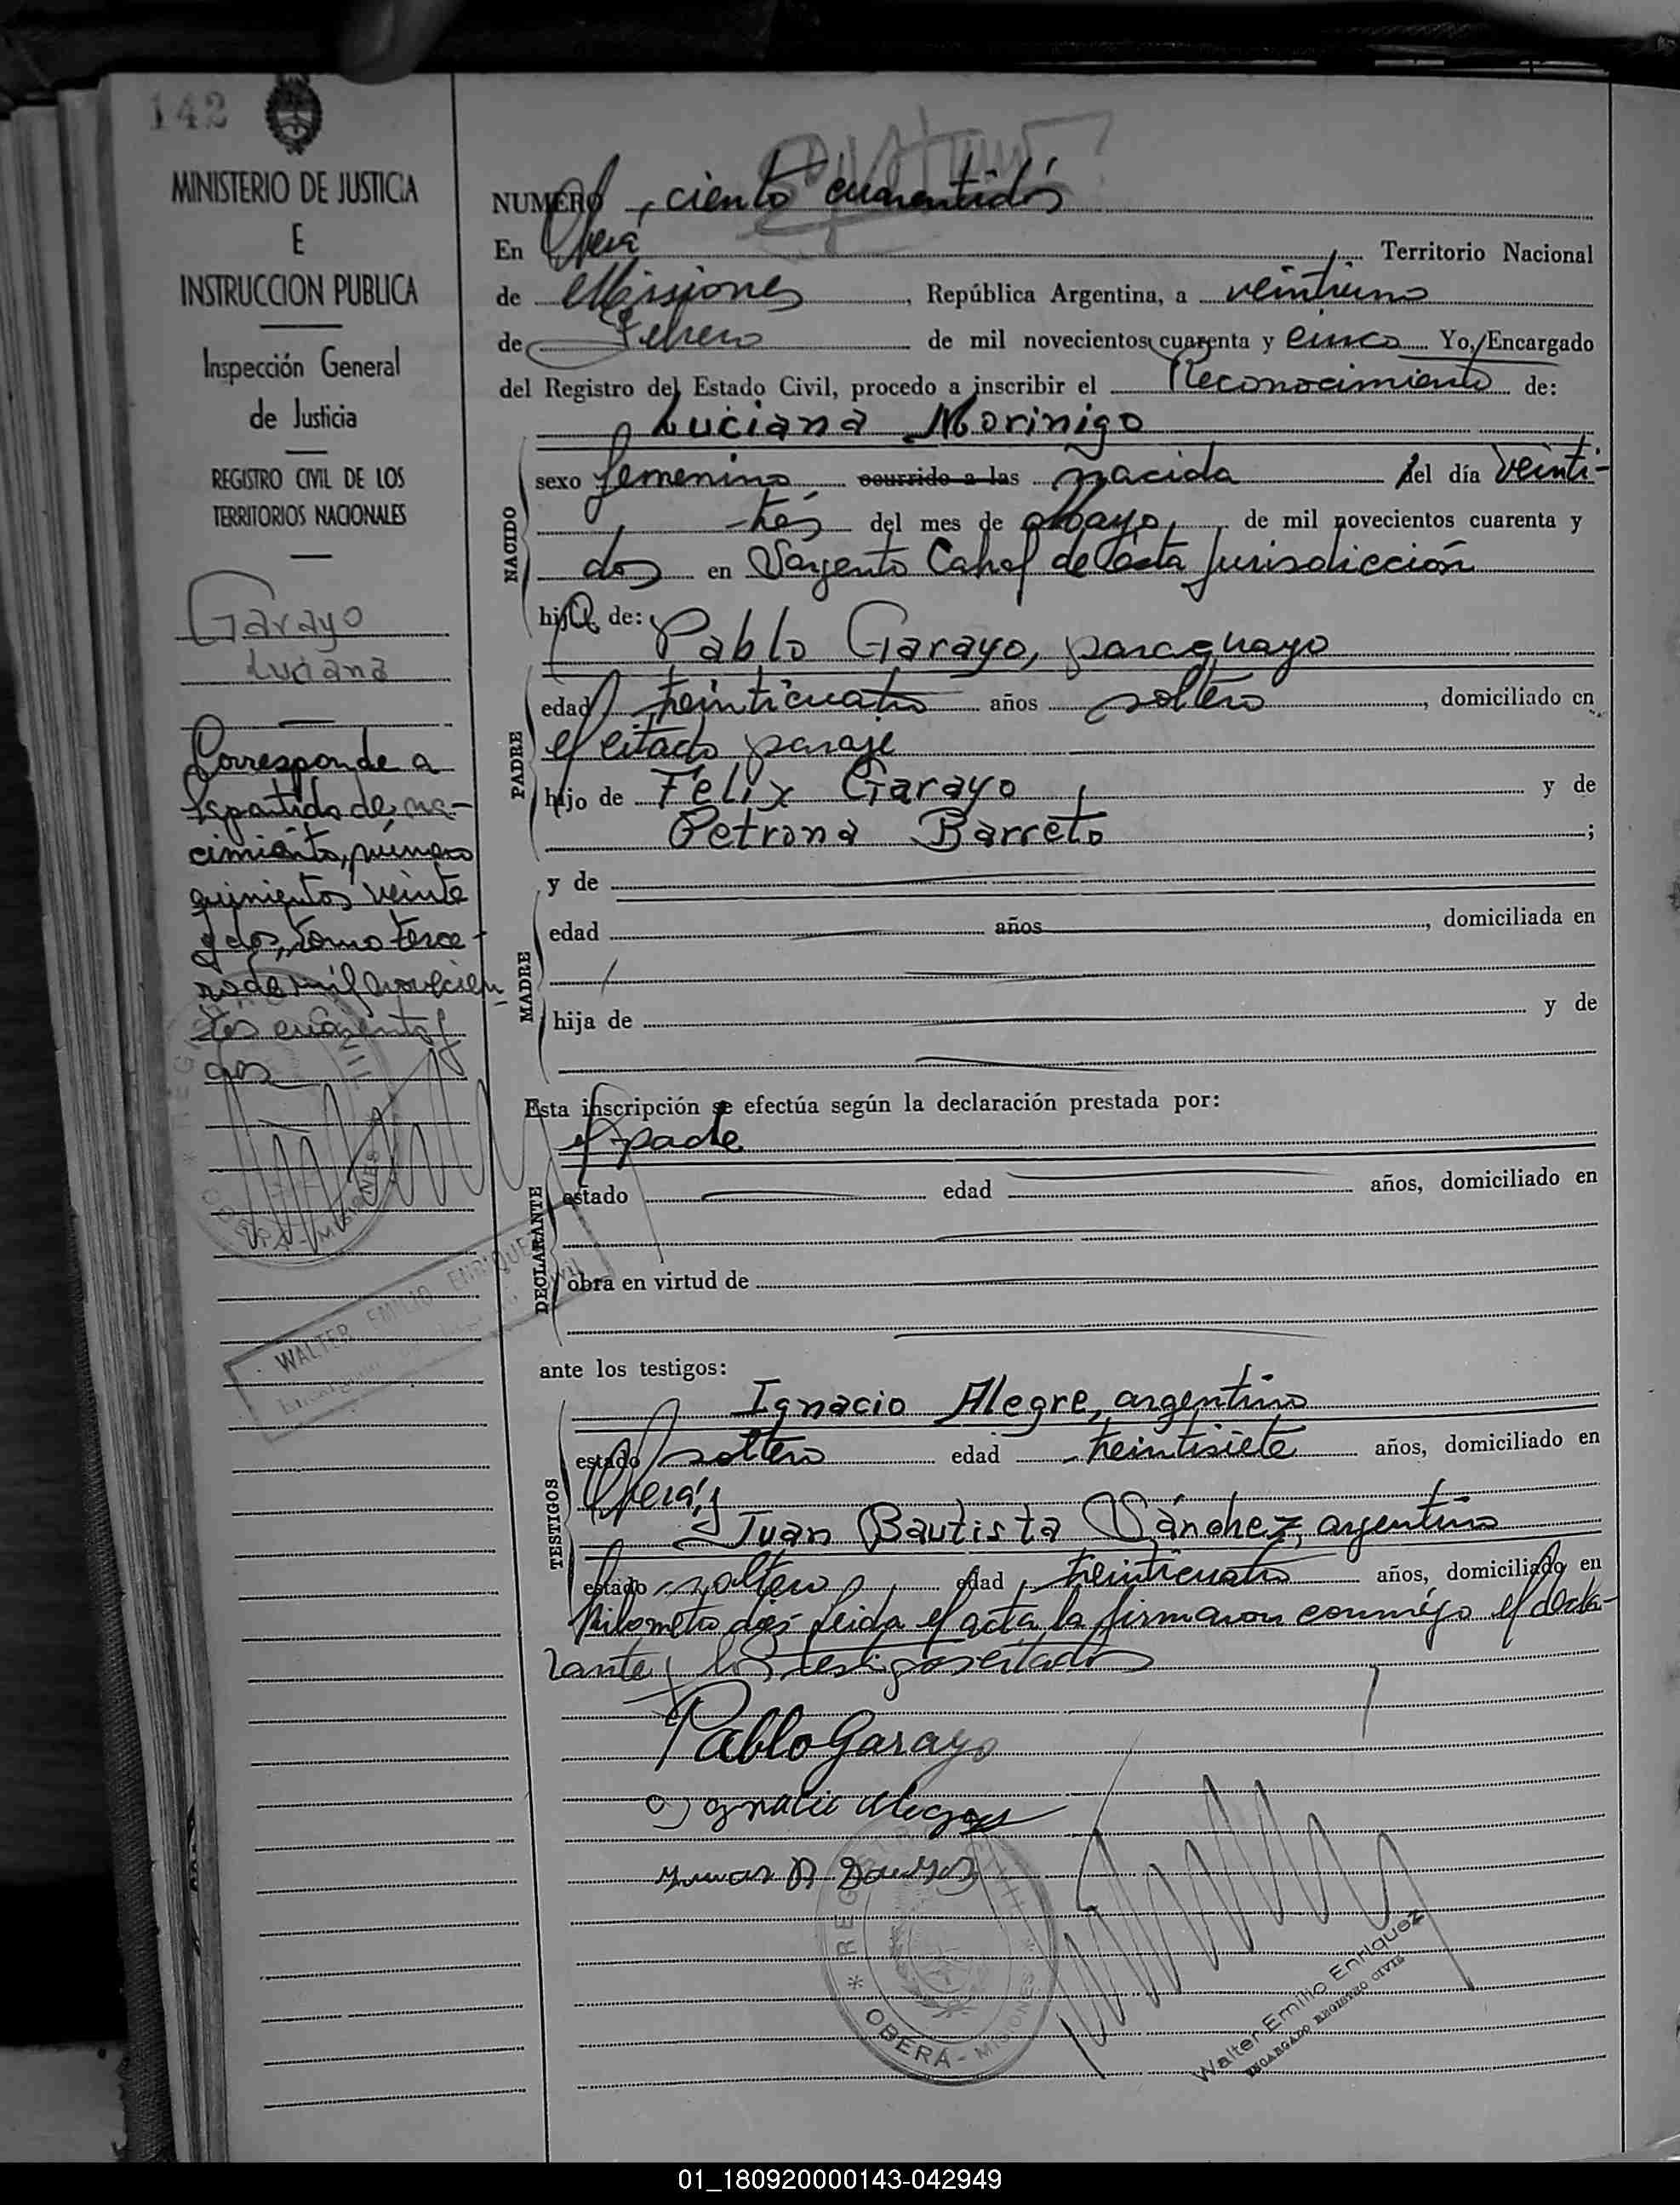 142
MINISTERIO DE JUSTICIA
E
INSTRUCCION PUBLICA
Inspección General
de Justicia
REGISTRO CIVIL DE LOS
TERRITORIOS NACIONALES
Garayo
Luciana
Corresponde a
la partida de na-
cimiento, número
quinientos veinte
y dos, tomo terce-
ro de mil novecien
tos cuarenta y
dos
WALTER EMILIO ENRIQUEZ
NUMERO, ciento cuarentidós
En Oberá Territorio Nacional
de Misiones, República Argentina, a veintiuno
de Febrero de mil novecientos cuarenta y cinco Yo, Encargado
del Registro del Estado Civil, procedo a inscribir el Reconocimiento de:
Luciana Morinigo
NACIDO
sexo femenino ocurrido a las nacida del día veinti-
trés del mes de Mayo, de mil novecientos cuarenta y
dos en Sargento Cabral de ésta Jurisdicción
hija de: Pablo Garayo, paraguayo
PADRE
edad treinticuatro años soltero, domiciliado en
el citado paraje
hijo de Félix Garayo y de
Petrona Barreto;
y de
MADRE
edad años, domiciliada en
hija de y de
Esta inscripción se efectúa según la declaración prestada por:
el padre
DECLARANTE
estado edad años, domiciliado en
obra en virtud de
ante los testigos:
TESTIGOS
Ignacio Alegre, argentino
estado soltero edad treintisiete años, domiciliado en
Oberá, y
Juan Bautista Sánchez, argentino
estado soltero, edad, treinticuatro años, domiciliado en
Kilometro diez leida el acta la firmaron conmigo el decla-
rante y los testigos citados
Pablo Garayo
Ignacio Alegre
* REGISTRO CIVIL *
OBERÁ - MISIONES
Walter Emilio Enriquez
ENCARGADO REGISTRO CIVIL
01_180920000143-042949